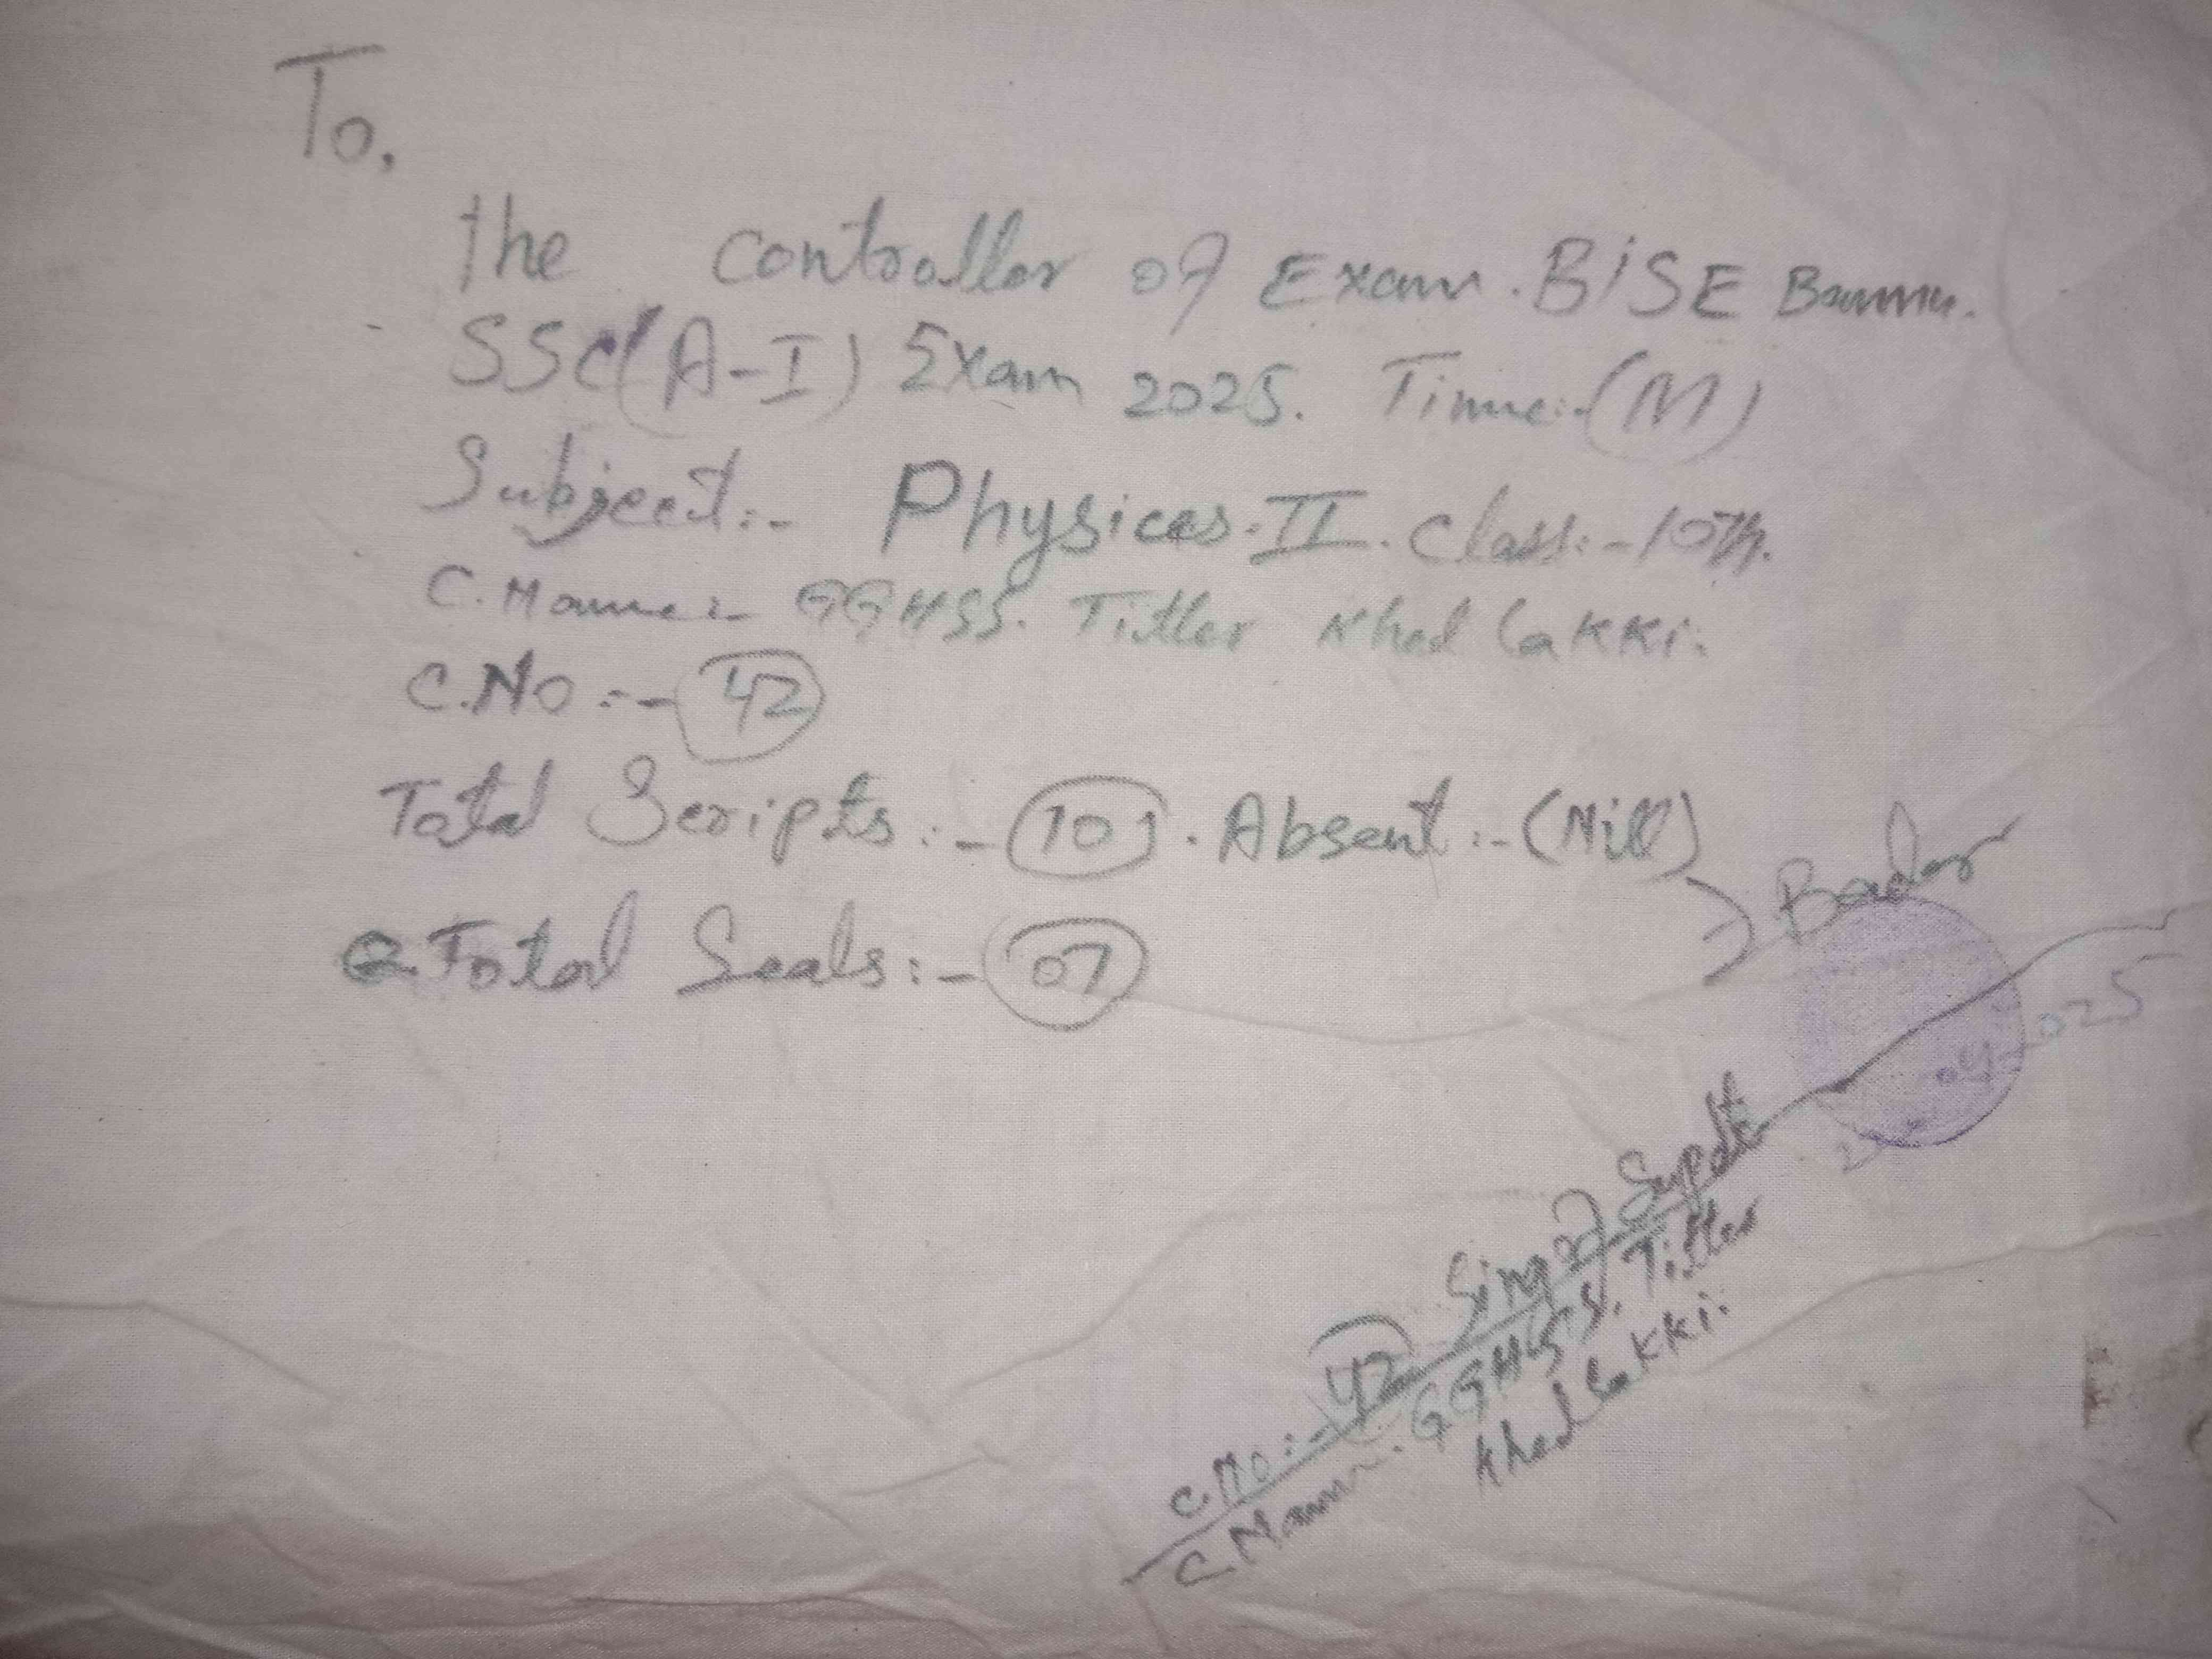 To,
the controller of Exam. BISE Bannu.
SSC(A-I) Exam 2025. Time:-(M)
Subject:- Physices-II. Class:-10th.
C.Name:- GGHSS. Titter Khel Lakki.
C.No:- 42
Total Scripts:- 101. Absent:-(Nill)
Total Seals:- 07
04 2025
Sing of Supdt
C.No:- 42
C Name:- GGHSS. Titter
Khel Lakki.